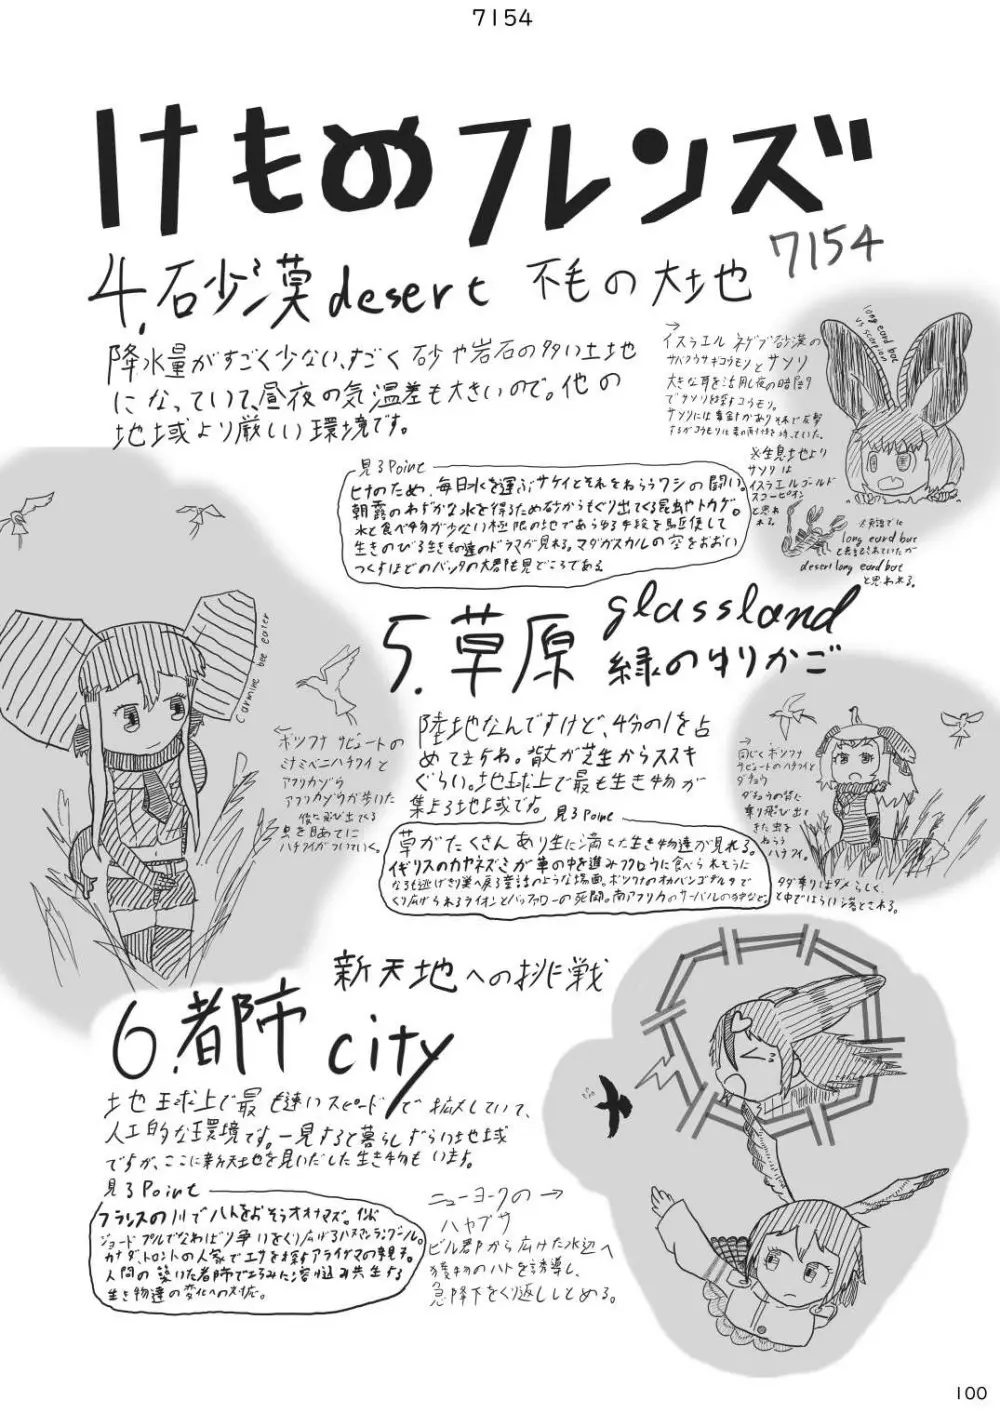 7154
けものフレンズ
7154
4.砂漠desert 不毛の大地
降水量がすごく少ない、すごく砂や岩石の多い土地
になっていて、昼夜の気温差も大きいので。他の
地域より厳しい環境です。
→
イスラエル ネゲブ砂漠の
サバクウサギコウモリとサソリ
大きな耳を活用し夜の暗闇
でサソリを探すコウモリ。
サソリには毒針がありそれで反撃
するがコウモリは毒の耐性を持っていた。
long eard bat
vs scorpion
※生息地より
サソリは
イスラエルゴールド
スコーピオン
と思わ
れる
※英語では
long eard bat
と表記されていたが
desert long eard bat
と思われる。
見るPoint
ヒナのため、毎日水を運ぶサケイとそれをねらうワシの闘い。
朝露のわずかな水を得るため砂からもぐり出てくる昆虫やトカゲ。
水と食べ物が少ない極限の地であらゆる手段を駆使して
生きのびる生きもの達のドラマが見れる。マダガスカルの空をおおい
つくすほどのバッタの大群も見どころである
5.草原 glassland
緑のゆりかご
陸地なんですけど、4分の1を占
めてますね。背丈が芝生からススキ
ぐらい。地球上で最も生き物が
集まる地域です。
見るPoint
草がたくさんあり生に満ちた生き物達が見れる。
イギリスのカヤネズミが草の中を進みフクロウに食べられそうに
なるも逃げきり巣へ戻る童話のような場面。ボツワナのオカバンゴデルタで
くり広げられるライオンとバッファローの死闘。南アフリカのサーバルの狩など。
carmine bee eater
←
ボツワナ サビュートの
ミナミベニハチクイと
アフリカゾウ
アフリカゾウが歩いた
後に飛び出てくる
虫を目あてに
ハチクイがついていく。
→
同じくボツワナ
サビュートのハチクイと
ダチョウ
ダチョウの背に
乗り飛び出て
きた虫を
ねらう
ハチクイ。
タダ乗りはダメらしく、
途中ではらい落とされる。
6.都市 city
新天地への挑戦
地球上で最も速いスピードで拡大していて、
人工的な環境です。一見すると暮らしずらい地域
ですが、ここに新天地を見いだした生き物もいます。
見るPoint
フランスの川でハトをおそうオオナマズ。インド
ジョードプルでなわばり争いをくり広げるハヌマンラングール。
カナダ、トロントの人家でエサを探すアライグマの親子。
人間の築いた都市でたくみに溶け込み共生する
生き物達の変化への対応。
ニューヨークの→
ハヤブサ
ビル群から広けた水辺へ
獲物のハトを誘導し、
急降下をくり返ししとめる。
100